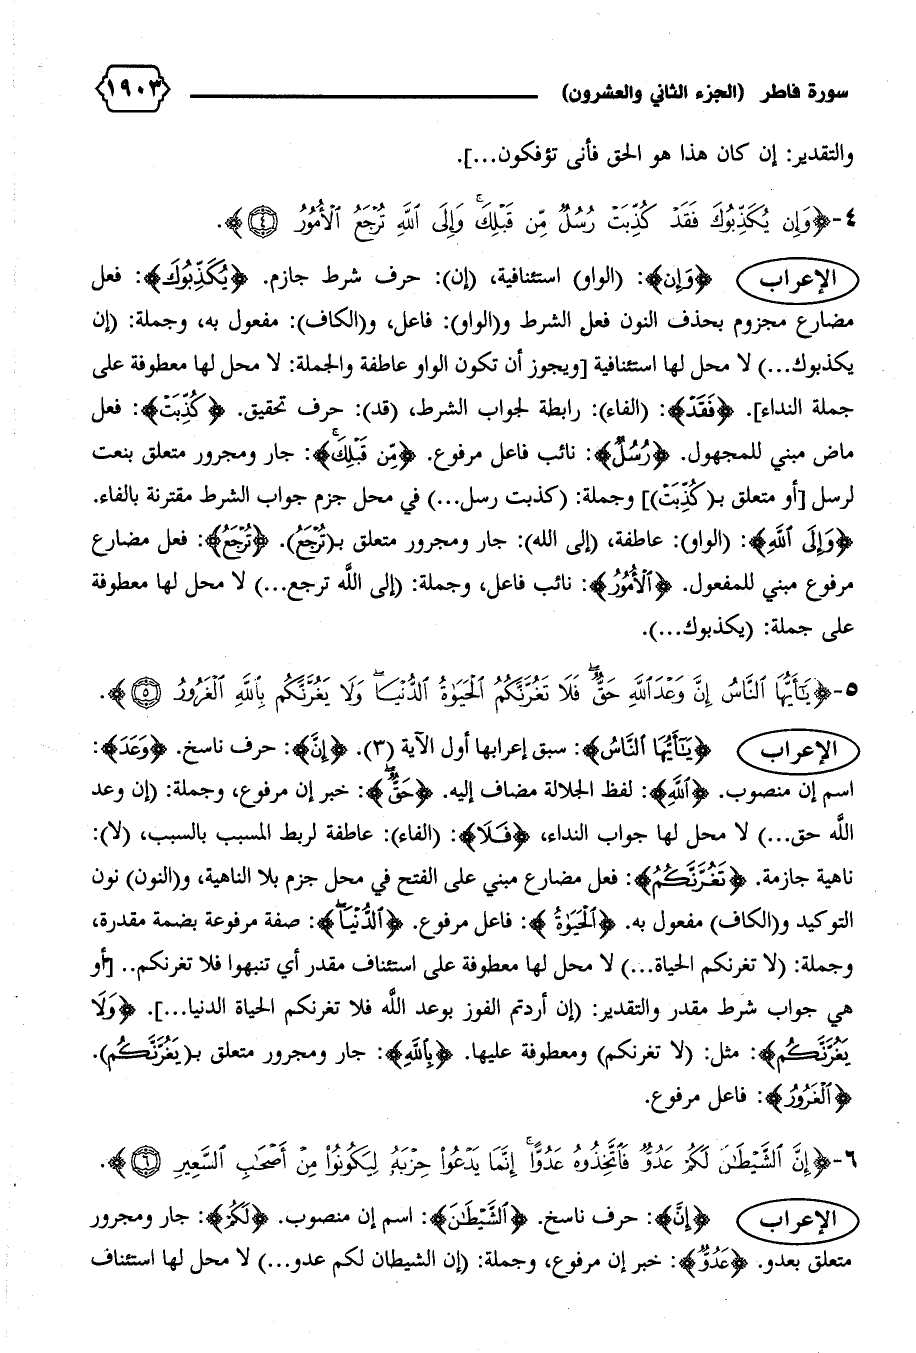 سورة فاطر (الجزء الثاني والعشرون) ١٩٠٣
والتقدير: إن كان هذا هو الحق فأنى تؤفكون...].
٤- ﴿وَإِن يُكَذِّبُوكَ فَقَدْ كُذِّبَتْ رُسُلٌ مِّن قَبْلِكَ ۚ وَإِلَى ٱللَّهِ تُرْجَعُ ٱلْأُمُورُ ٤﴾.
الإعراب ﴿وَإِن﴾: (الواو) استئنافية، (إن): حرف شرط جازم. ﴿يُكَذِّبُوكَ﴾: فعل
مضارع مجزوم بحذف النون فعل الشرط و(الواو): فاعل، و(الكاف): مفعول به، وجملة: (إن
يكذبوك...) لا محل لها استئنافية [ويجوز أن تكون الواو عاطفة والجملة: لا محل لها معطوفة على
جملة النداء]. ﴿فَقَدْ﴾: (الفاء): رابطة لجواب الشرط، (قد): حرف تحقيق. ﴿كُذِّبَتْ﴾: فعل
ماض مبني للمجهول. ﴿رُسُلٌ﴾: نائب فاعل مرفوع. ﴿مِّن قَبْلِكَ ۚ﴾: جار ومجرور متعلق بنعت
لرسل [أو متعلق بـ(كُذِّبَتْ)] وجملة: (كذبت رسل...) في محل جزم جواب الشرط مقترنة بالفاء.
﴿وَإِلَى ٱللَّهِ﴾: (الواو): عاطفة، (إلى الله): جار ومجرور متعلق بـ(تُرْجَعُ). ﴿تُرْجَعُ﴾: فعل مضارع
مرفوع مبني للمفعول. ﴿ٱلْأُمُورُ﴾: نائب فاعل، وجملة: (إلى اللَّه ترجع...) لا محل لها معطوفة
على جملة: (يكذبوك...).
٥- ﴿يَٰٓأَيُّهَا ٱلنَّاسُ إِنَّ وَعْدَ ٱللَّهِ حَقٌّ ۖ فَلَا تَغُرَّنَّكُمُ ٱلْحَيَوٰةُ ٱلدُّنْيَا ۖ وَلَا يَغُرَّنَّكُم بِٱللَّهِ ٱلْغَرُورُ ٥﴾.
الإعراب ﴿يَٰٓأَيُّهَا ٱلنَّاسُ﴾: سبق إعرابها أول الآية (٣). ﴿إِنَّ﴾: حرف ناسخ. ﴿وَعْدَ﴾:
اسم إن منصوب. ﴿ٱللَّهِ﴾: لفظ الجلالة مضاف إليه. ﴿حَقٌّ ۖ﴾: خبر إن مرفوع، وجملة: (إن وعد
اللَّه حق...) لا محل لها جواب النداء، ﴿فَلَا﴾: (الفاء): عاطفة لربط المسبب بالسبب، (لا):
ناهية جازمة. ﴿تَغُرَّنَّكُمُ﴾: فعل مضارع مبني على الفتح في محل جزم بلا الناهية، و(النون) نون
التوكيد و(الكاف) مفعول به. ﴿ٱلْحَيَوٰةُ﴾: فاعل مرفوع. ﴿ٱلدُّنْيَا ۖ﴾: صفة مرفوعة بضمة مقدرة،
وجملة: (لا تغرنكم الحياة...) لا محل لها معطوفة على استئناف مقدر أي تنبهوا فلا تغرنكم.. [أو
هي جواب شرط مقدر والتقدير: (إن أردتم الفوز بوعد اللَّه فلا تغرنكم الحياة الدنيا...]. ﴿وَلَا
يَغُرَّنَّكُم﴾: مثل: (لا تغرنكم) ومعطوفة عليها. ﴿بِٱللَّهِ﴾: جار ومجرور متعلق بـ(يَغُرَّنَّكُم).
﴿ٱلْغَرُورُ﴾: فاعل مرفوع.
٦- ﴿إِنَّ ٱلشَّيْطَٰنَ لَكُمْ عَدُوٌّ فَٱتَّخِذُوهُ عَدُوًّا ۚ إِنَّمَا يَدْعُوا۟ حِزْبَهُۥ لِيَكُونُوا۟ مِنْ أَصْحَٰبِ ٱلسَّعِيرِ ٦﴾.
الإعراب ﴿إِنَّ﴾: حرف ناسخ. ﴿ٱلشَّيْطَٰنَ﴾: اسم إن منصوب. ﴿لَكُمْ﴾: جار ومجرور
متعلق بعدو. ﴿عَدُوٌّ﴾: خبر إن مرفوع، وجملة: (إن الشيطان لكم عدو...) لا محل لها استئناف